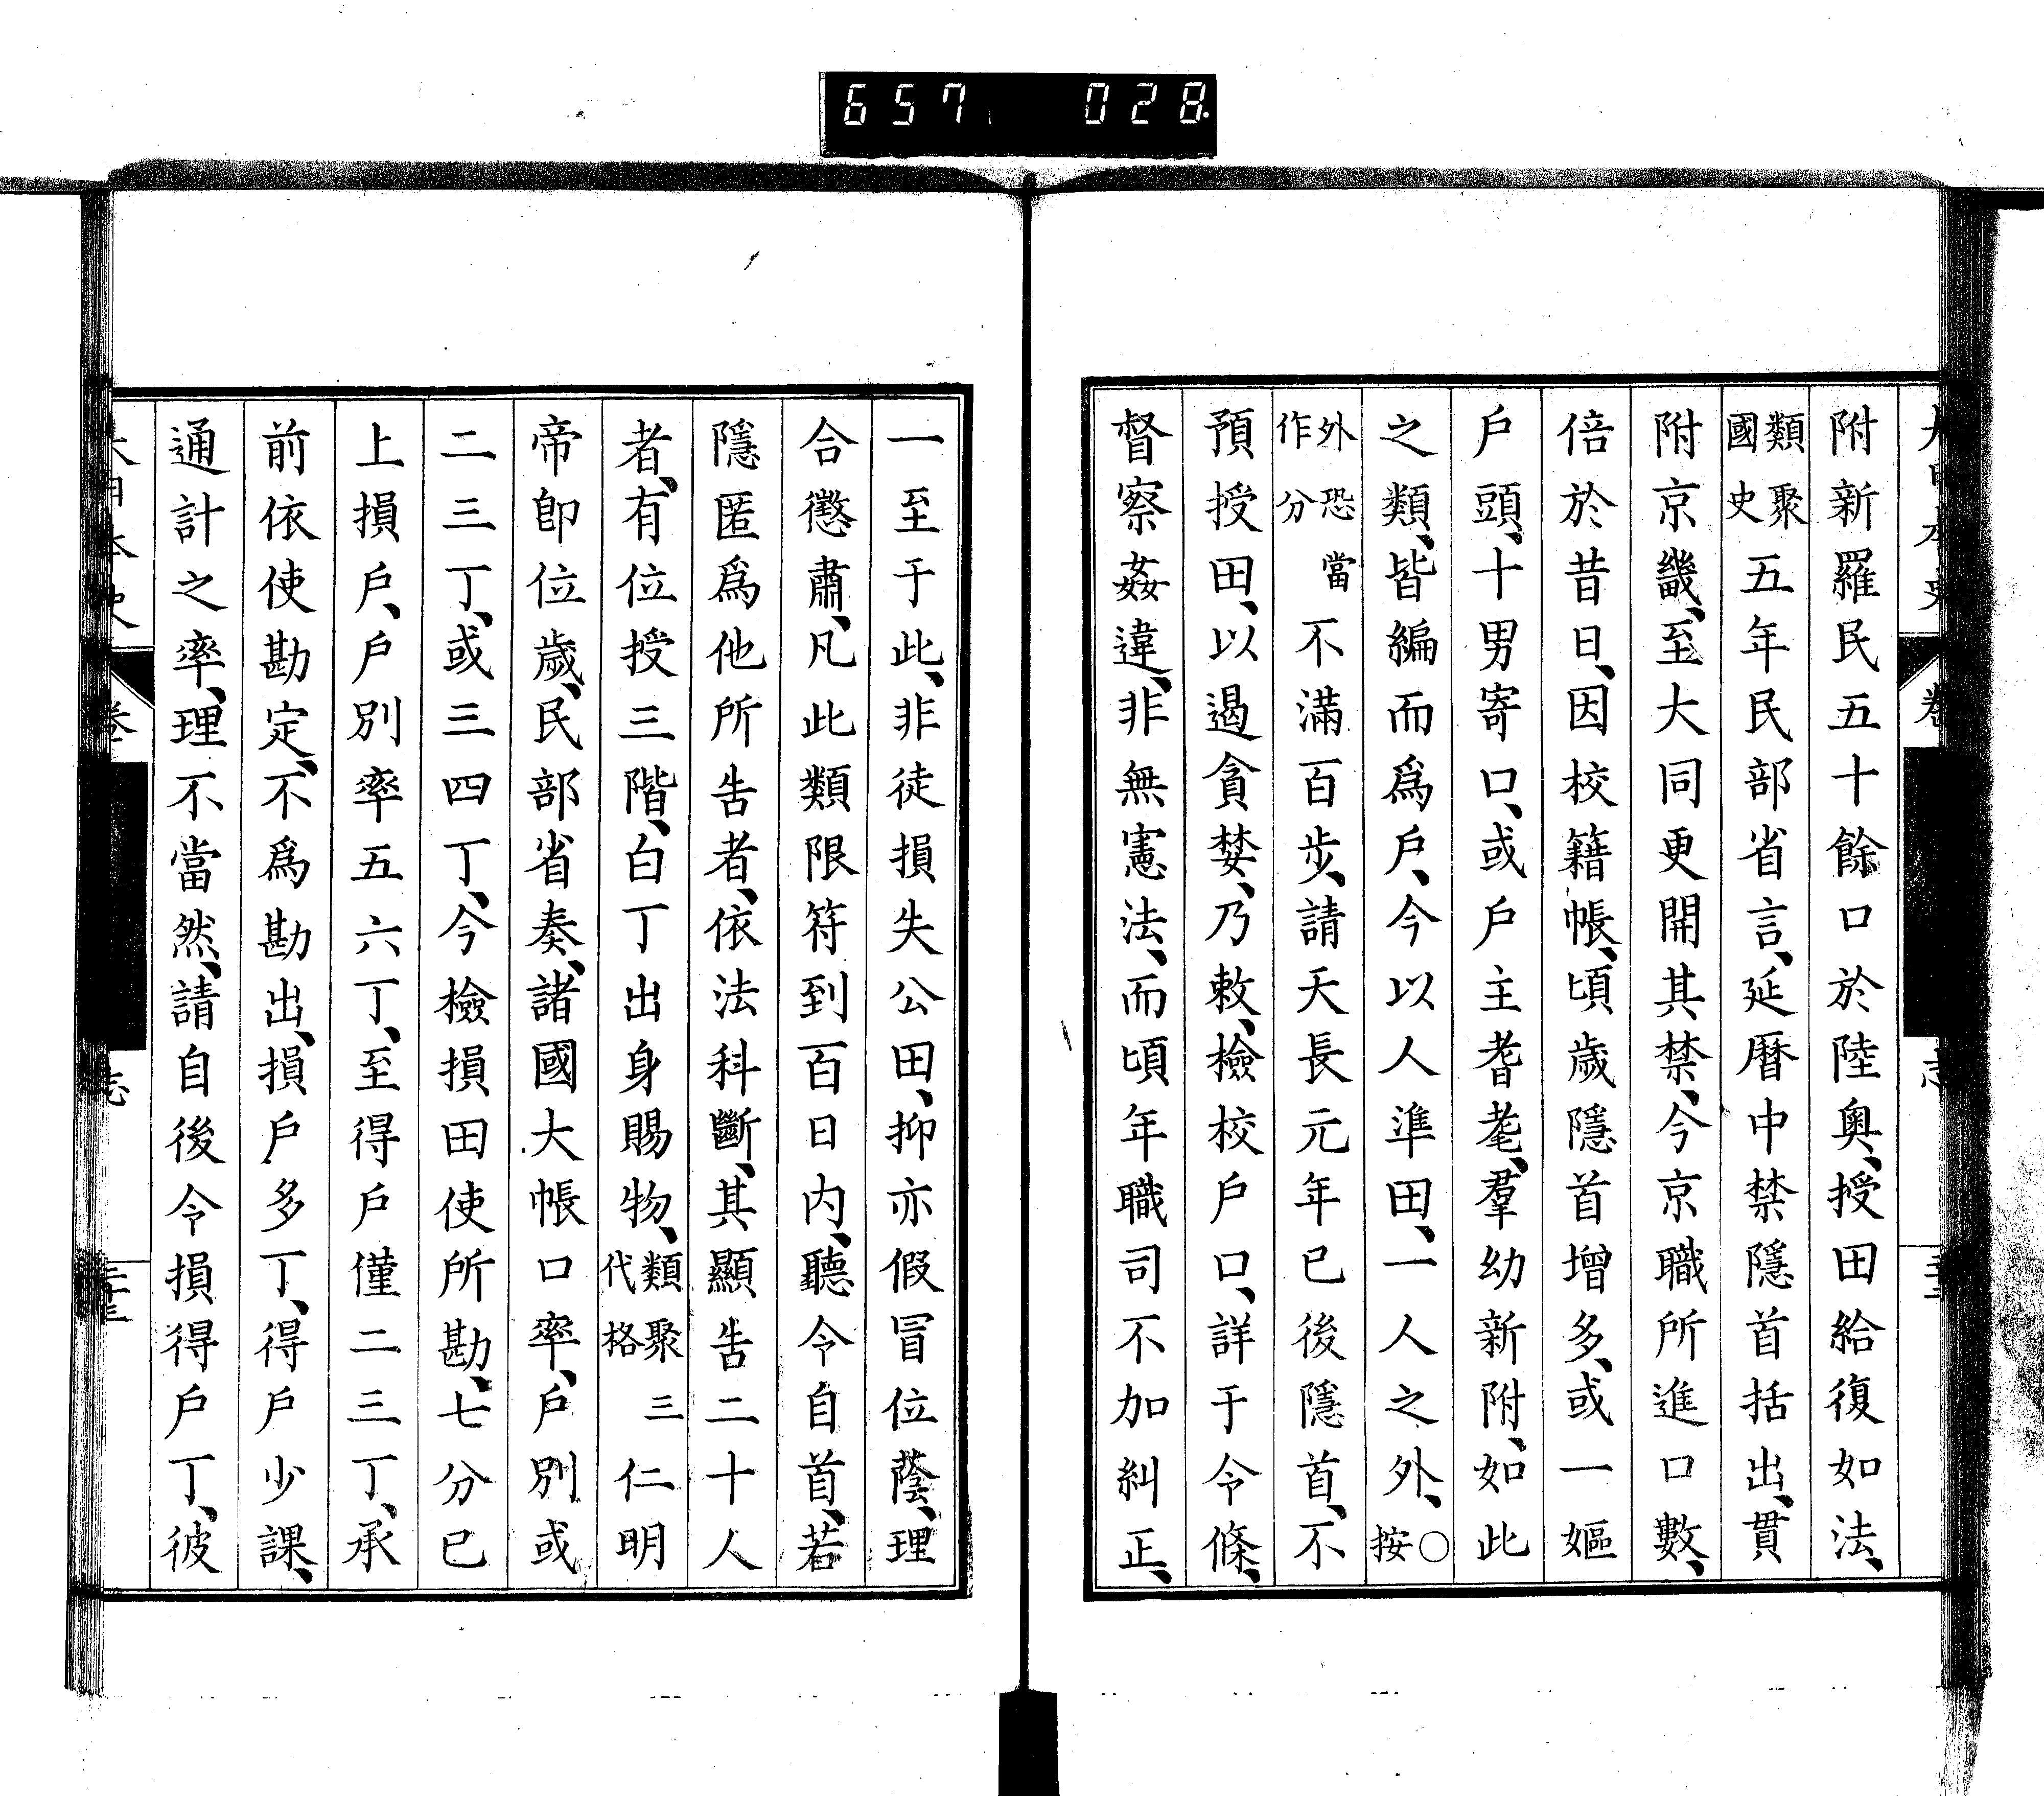 657 028
附新羅民五十餘口於陸奧、授田給復如法、
類聚國史五年民部省言、延曆中禁隱首括出、貫
附京畿、至大同更開其禁、今京職所進口數、
倍於昔日、因校籍帳、頃歲隱首增多、或一嫗
戶頭、十男寄口、或戶主耆耄、羣幼新附、如此
之類、皆編而爲戶、今以人準田、一人之外、○按
外恐當作分不滿百步、請天長元年已後隱首、不
預授田、以遏貪婪、乃敕、檢校戶口、詳于令條、
督察姦違、非無憲法、而頃年職司不加糾正、
一至于此、非徒損失公田、抑亦假冒位蔭、理
合懲肅、凡此類限符到百日內、聽令自首、若
隱匿爲他所告者、依法科斷、其顯告二十人
者、有位授三階、白丁出身賜物、類聚三代格仁明
帝卽位歲、民部省奏、諸國大帳口率、戶別或
二三丁、或三四丁、今檢損田使所勘、七分已
上損戶、戶別率五六丁、至得戶僅二三丁、承
前依使勘定、不爲勘出、損戶多丁、得戶少課、
通計之率、理不當然、請自後令損得戶丁、彼